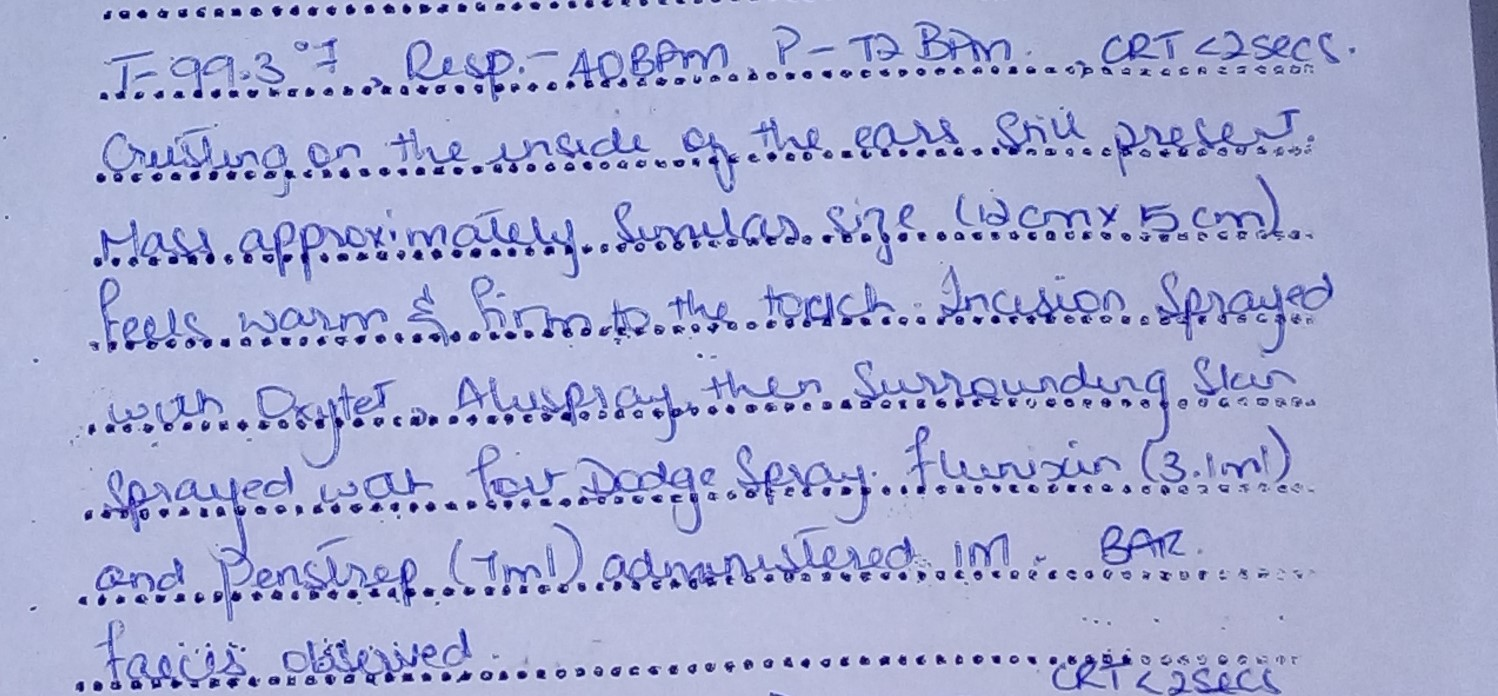 T-99.3°F, Resp.- 40BPM, P-72 BPM., CRT <2secs.
Crusting on the inside of the ears still present.
Mass approximately similar size (12cm x 5cm)
feels warm & firm to the touch. Incision sprayed
with Oxytet, Aluspray, then surrounding skin
sprayed with fort Dodge Spray. flunixin (3.1ml)
and Penstrep (7ml) administered IM. BAR.
faeces observed.
CRT <2secs